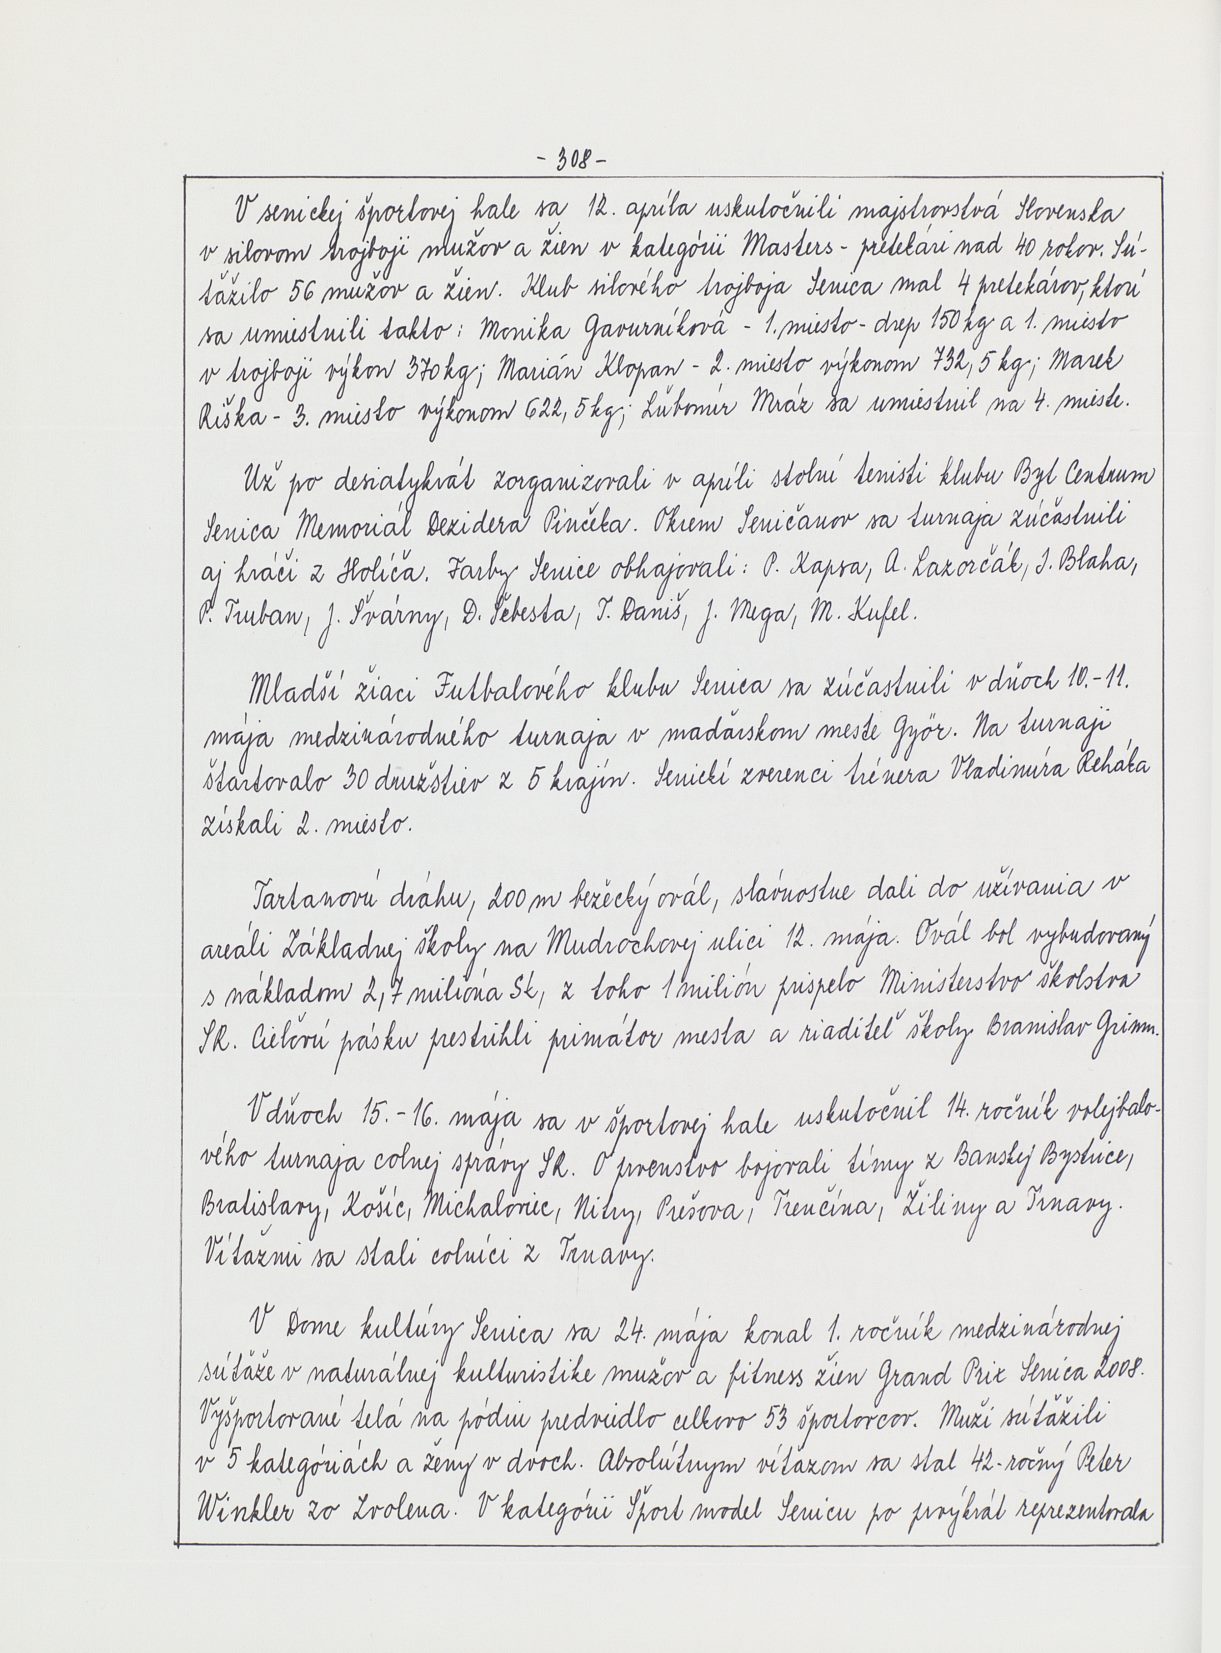 - 308 -
V senickej športovej hale sa 12. apríla uskutočnili majstrovstvá Slovenska
v silovom trojboji mužov a žien v kategórii Masters - pretekári nad 40 rokov. Sú-
ťažilo 56 mužov a žien. Klub silového trojboja Senica mal 4 pretekárov, ktorí
sa umiestnili takto: Monika Gavurníková - 1. miesto - drep 150 kg a 1. miesto
v trojboji výkon 370 kg; Marián Klopan - 2. miesto výkonom 732,5 kg; Marek
Riška - 3. miesto výkonom 622,5 kg; Ľubomír Mráz sa umiestnil na 4. mieste.
Už po desiatykrát zorganizovali v apríli stolní tenisti klubu Byt Centrum
Senica Memoriál Dezidera Pinčeka. Okrem Seničanov sa turnaja zúčastnili
aj hráči z Holíča. Farby Senice obhajovali: P. Kapsa, A. Lazorčák, J. Blaha,
P. Truban, J. Švárny, D. Šebesta, T. Daniš, J. Mega, M. Kufel.
Mladší žiaci Futbalového klubu Senica sa zúčastnili v dňoch 10.-11.
mája medzinárodného turnaja v maďarskom meste Györ. Na turnaji
štartovalo 30 družstiev z 5 krajín. Senickí zverenci trénera Vladimíra Reháka
získali 2. miesto.
Tartanovú dráhu, 200 m bežecký ovál, slávnostne dali do užívania v
areáli Základnej školy na Mudrochovej ulici 12. mája. Ovál bol vybudovaný
s nákladom 2,7 milióna Sk, z toho 1 milión prispelo Ministerstvo školstva
SR. Cieľovú pásku prestrihli primátor mesta a riaditeľ školy Branislav Grimm.
V dňoch 15.-16. mája sa v športovej hale uskutočnil 14. ročník volejbalo-
vého turnaja colnej správy SR. O prvenstvo bojovali tímy z Banskej Bystrice,
Bratislavy, Košíc, Michaloviec, Nitry, Prešova, Trenčína, Žiliny a Trnavy.
Víťazmi sa stali colníci z Trnavy.
V Dome kultúry Senica sa 24. mája konal 1. ročník medzinárodnej
súťaže v naturálnej kulturistike mužov a fitness žien Grand Prix Senica 2008.
Vyšportované telá na pódiu predviedlo celkovo 53 športovcov. Muži súťažili
v 5 kategóriách a ženy v dvoch. Absolútnym víťazom sa stal 42-ročný Peter
Winkler zo Zvolena. V kategórii Šport model Senicu po prvýkrát reprezentovala